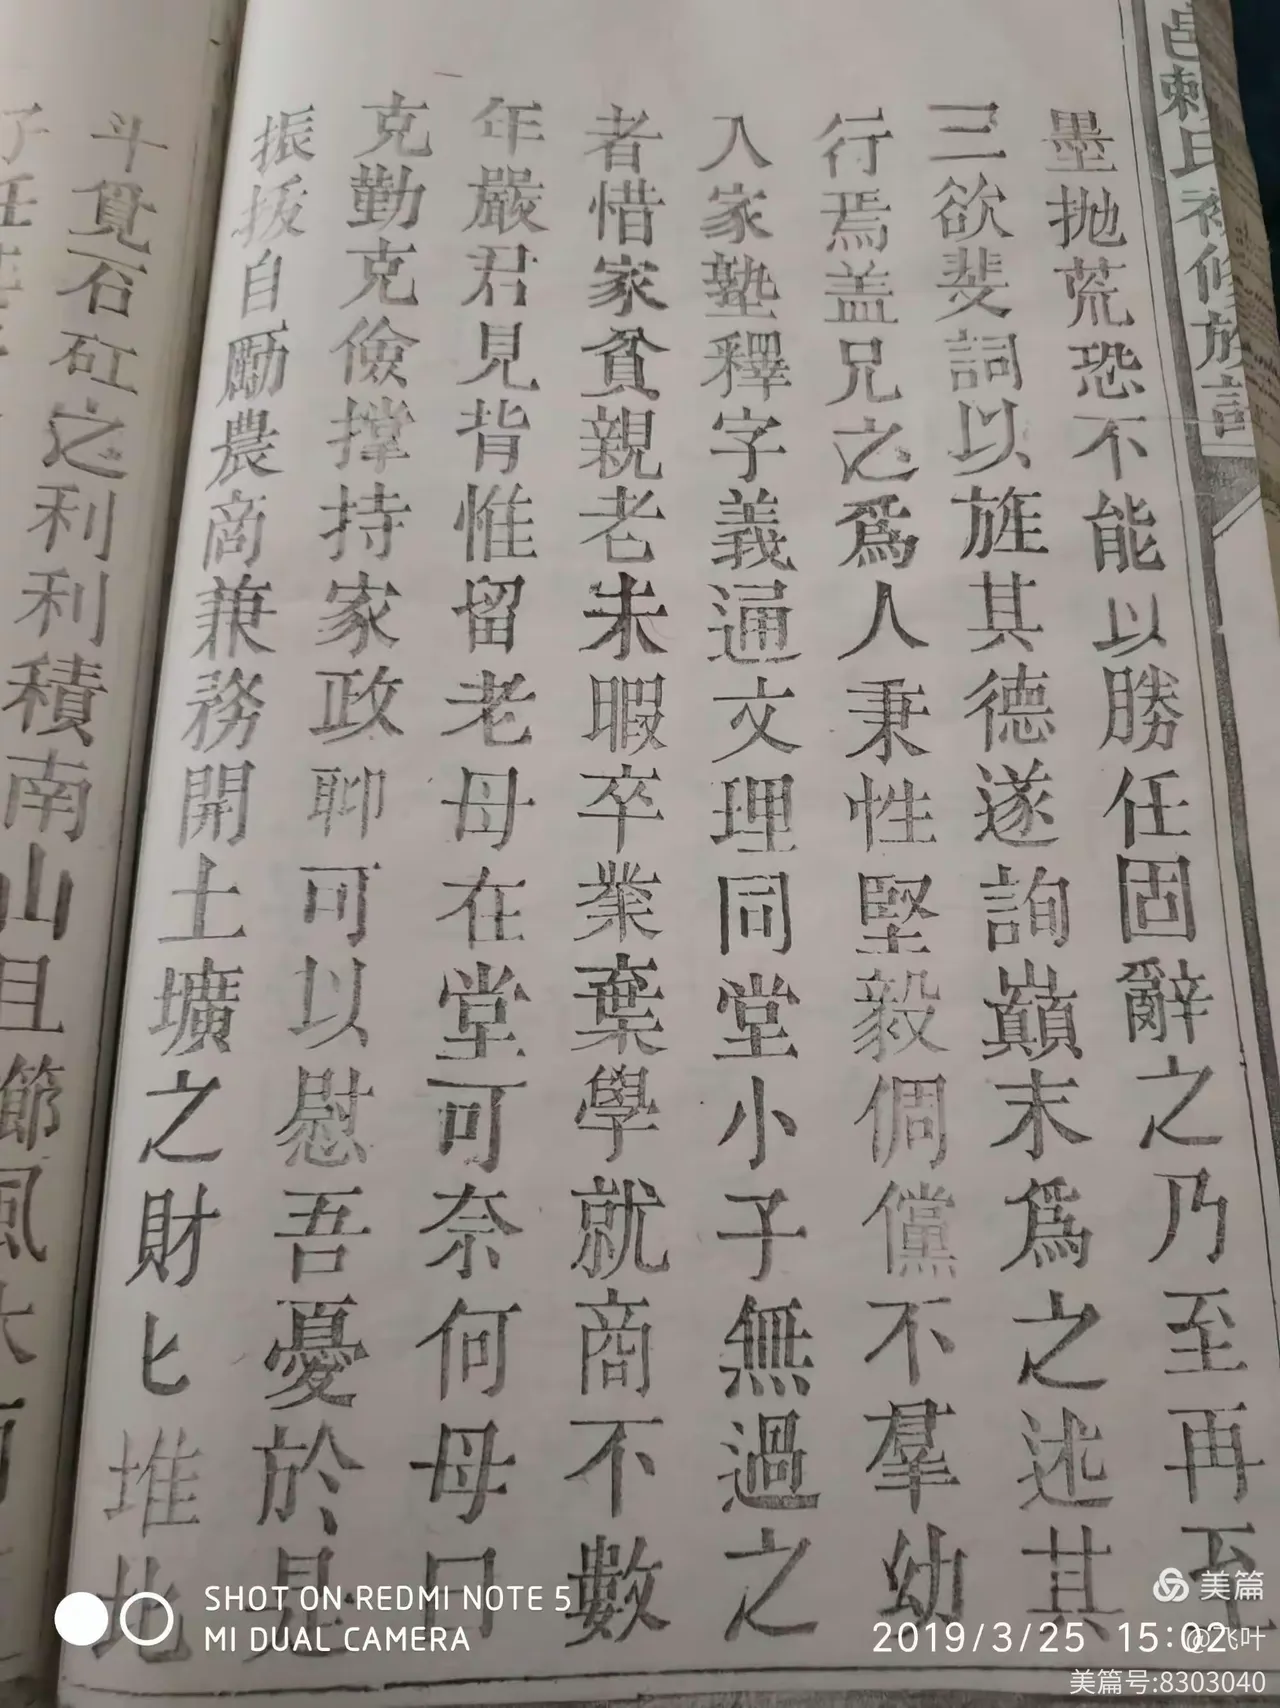 邑賴氏初修族譜
墨抛荒恐不能以勝任固辭之乃至再至
三欲斐詞以旌其德遂詢巔末為之述其
行焉盖兄之為人秉性堅毅倜儻不羣幼
入家塾釋字義通文理同堂小子無過之
者惜家貧親老未暇卒業棄學就商不數
年嚴君見背惟留老母在堂可奈何母曰
克勤克儉撐持家政聊可以慰吾憂於是
振拔自勵農商兼務開土壙之財匕堆北
斗覓石矼之利利積南山且節風
SHOT ON REDMI NOTE 5
MI DUAL CAMERA
2019/3/25 15:02
美篇
@飞叶
美篇号:8303040